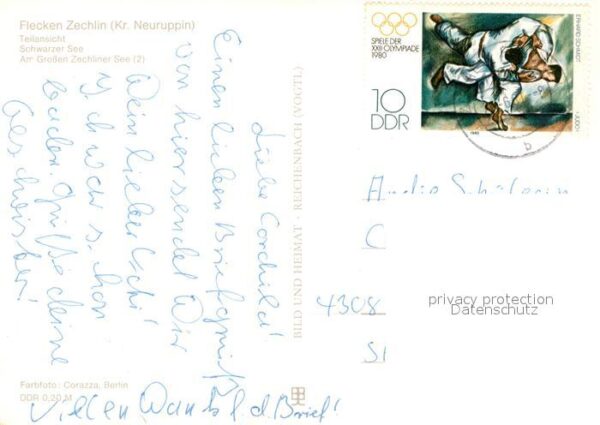 Flecken Zechlin (Kr. Neuruppin)
Teilansicht
Schwarzer See
Am Großen Zechliner See (2)
SPIELE DER
XXII. OLYMPIADE
1980
10
DDR
ERHARD SCHMIDT
»JUDO«
1980
b
Liebe
Einen lieben Briefgruß
von hier sendet Dir
Dein lieber
Ich war schon
baden. Grüße deine
Geschwister!
Vielen Dank f. d. Brief!
BILD UND HEIMAT · REICHENBACH (VOGTL)
4308
privacy protection
Datenschutz
Farbfoto: Corazza, Berlin
DDR 0,20 M